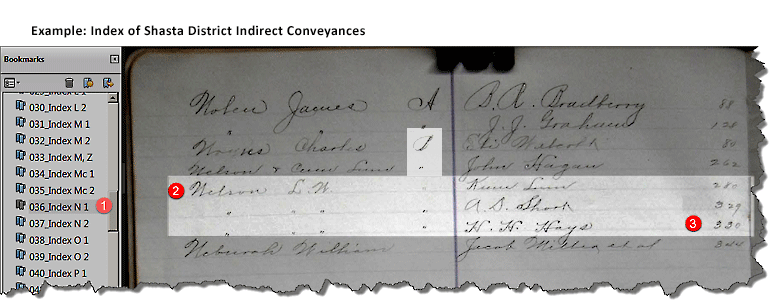 Example: Index of Shasta District Indirect Conveyances
Bookmarks
030_Index L 2
031_Index M 1
032_Index M 2
033_Index M, Z
034_Index Mc 1
035_Index Mc 2
036_Index N 1
037_Index N 2
038_Index O 1
039_Index O 2
040_Index P 1
1
Nolen James A B. R. Bradberry 88
" " " J. J. Graham 128
Charles 80
Nelson & " John Hagan 262
2 Nelson L. W. " 280
" " " A. D. Shook 329
" " " H. H. Hays 3 330
William Jacob et al 344